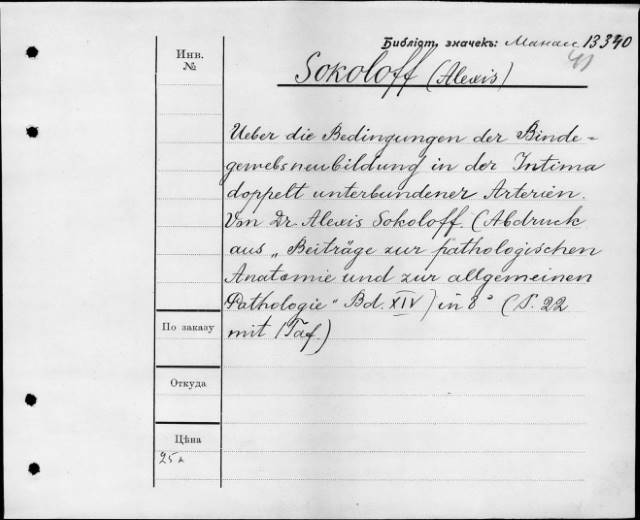 Инв.
№
Библіот. значекъ: Манас 13340
Sokoloff (Alexis)
Ueber die Bedingungen der Binde-
gewebsneubildung in der Intima
doppelt unterbundener Arterien.
Von Dr. Alexis Sokoloff. (Abdruck
aus „Beiträge zur pathologischen
Anatomie und zur allgemeinen
Pathologie“ Bd. XIV) in 8° (S. 22
mit 1 Taf.)
По заказу
Откуда
Цѣна
25к